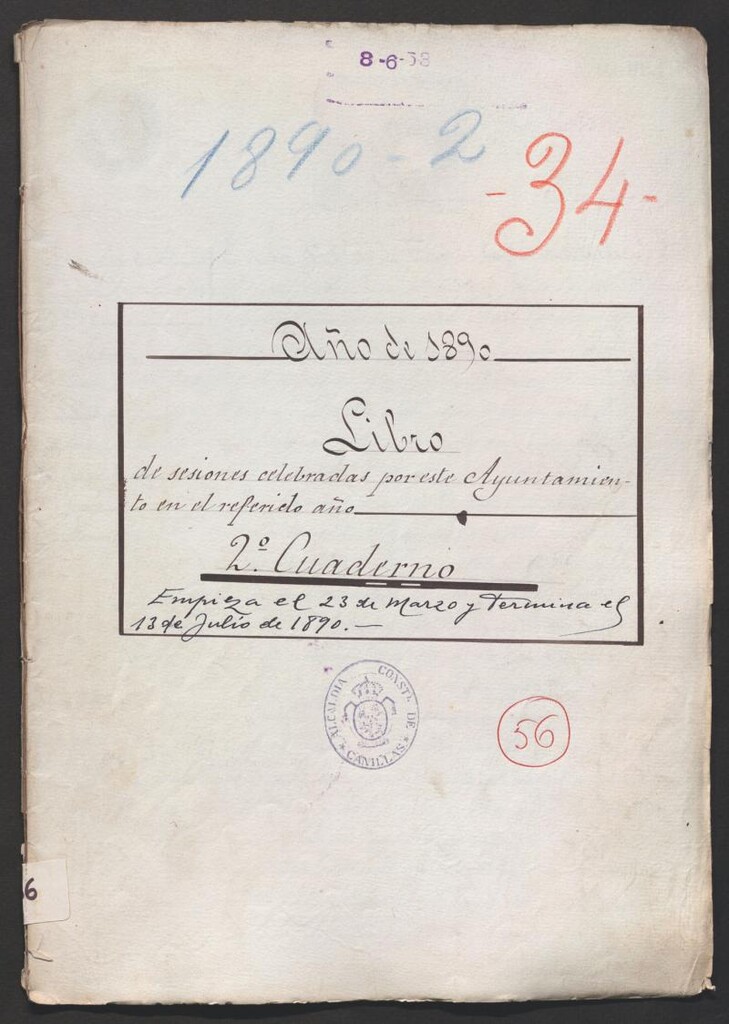 8-6-58
1890-2
-34-
Año de 1890
Libro
de sesiones celebradas por este Ayuntamien-
to en el referido año
2º Cuaderno
Empieza el 23 de Marzo y Termina el
13 de Julio de 1890.-
ALCALDIA CONSTL. DE
CANILLAS
56
6